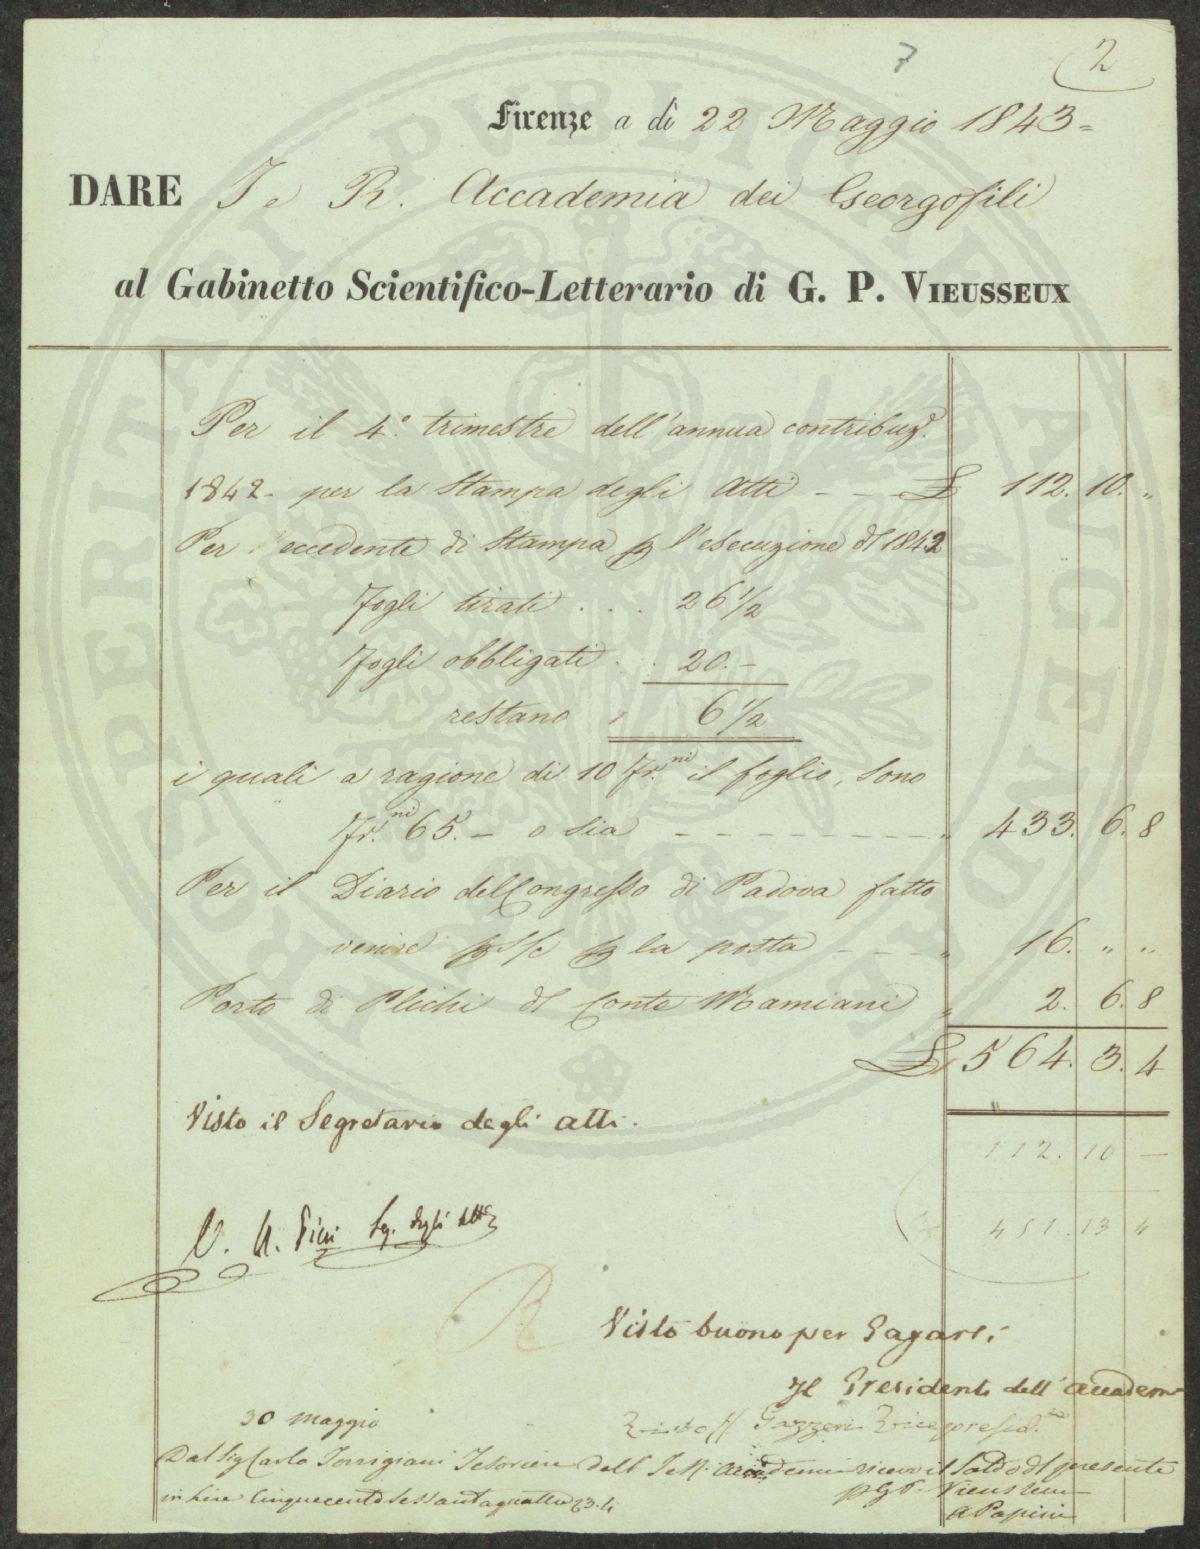 7
2
Firenze a dì 22 Maggio 1843 =
DARE I e R. Accademia dei Georgofili
al Gabinetto Scientifico-Letterario di G. P. VIEUSSEUX
Per il 4.° trimestre dell'annua contribuz.e
1842 - per la Stampa degli Atti - - - £ 112. 10. "
Per eccedente di Stampa p l'esecuzione del 1842
Fogli tirati . . . 26 1/2
Fogli obbligati . . 20. -
restano " 6 1/2
i quali a ragione di 10 Fr.ni il foglio, sono
Fr.ni 65. - o sia - - - - - - - - - " 433. 6. 8
Per il Diario del Congresso di Padova fatto
venire p s/c p la posta - - - " 16. " "
Porto di Plichi del Conte Mamiani " 2. 6. 8
£ 564. 3. 4
112. 10 —
451. 13 4
Visto il Segretario degli atti.
Seg. degli Atti
Visto buono per Pagarsi
Il Presidente dell'Accadem
Visto Gazzeri Vicepresid.te
30 Maggio
Dal Sig Carlo Torrigiani Tesoriere dell' I e R. Accademia ricevo il Saldo del presente
in Lire Cinquecento Sessantaquattro 3.4
p G. P. Vieusseux
A Papini
PROSPERITATI PVBLICAE AVGENDAE